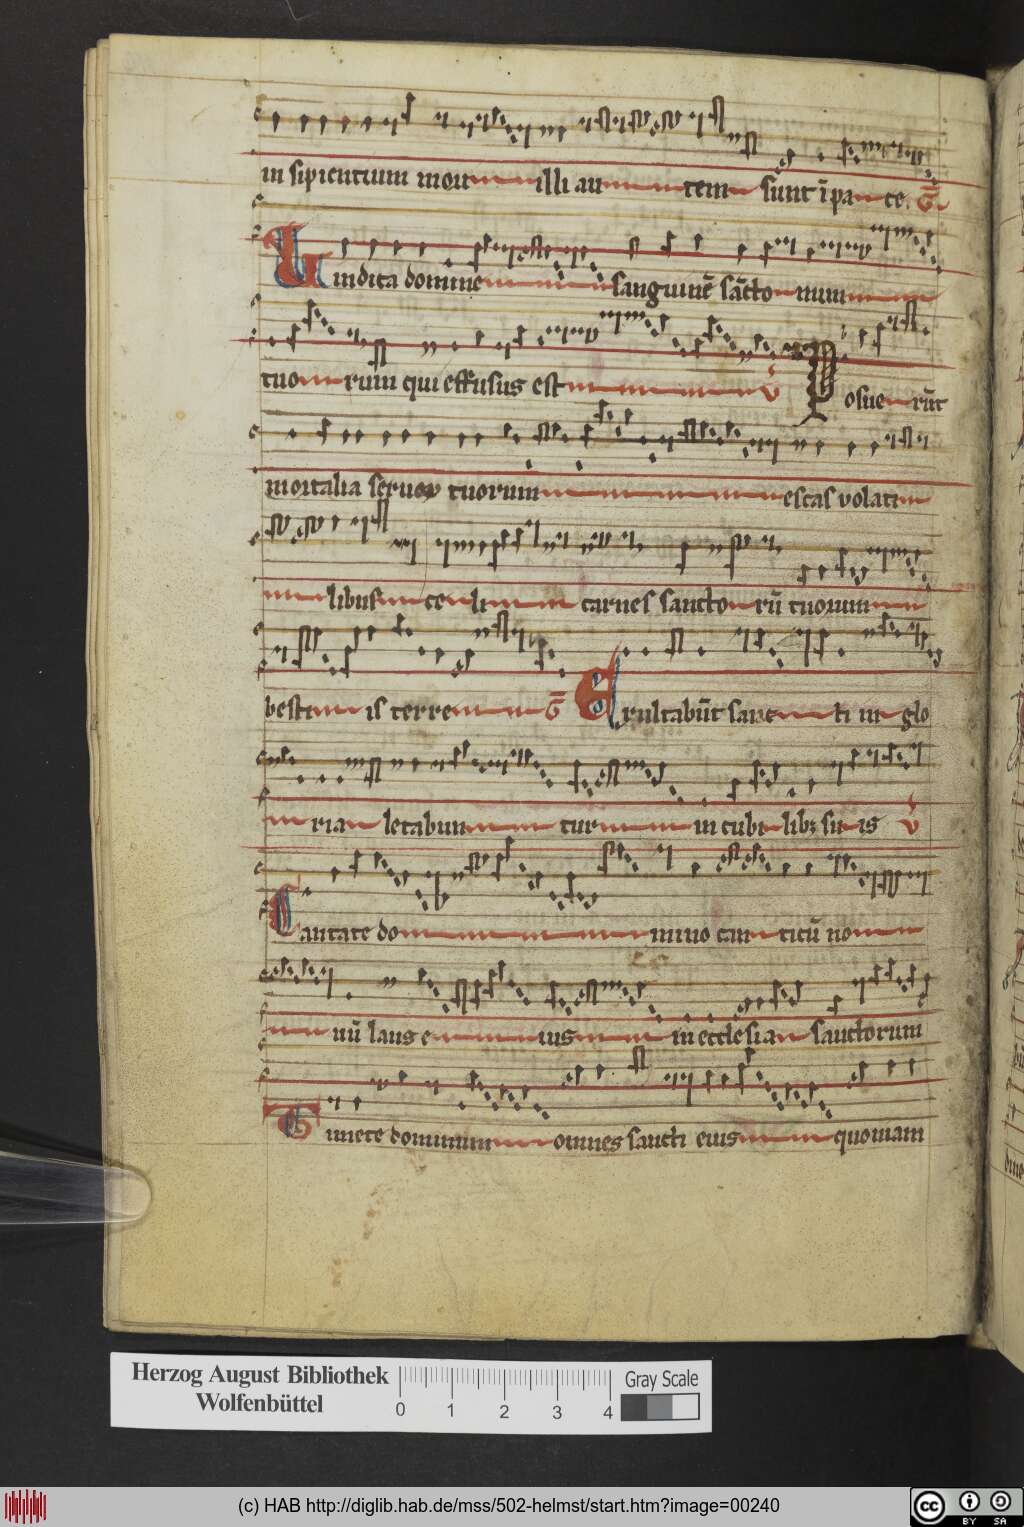 in sipientium mori illi au tem sunt ĩ pa ce. G̅
Vindica domine sanguinẽ sc̃to rum
tuo rum qui effusus est v̅ Posue rũt
mortalia seruoꝝ tuorum escas volati
libus ce li carnes sancto rũ tuorum
besti is terre G̅ Exultabũt sanc ti in glo
ria letabun tur in cubi libꝫ su is v̅
Cantate do mino can ticũ no
uũ laus e ius in ecclesia sanctorum
Timete dominum omnes sancti eius quoniam
Herzog August Bibliothek
Wolfenbüttel
0 1 2 3 4
Gray Scale
(c) HAB http://diglib.hab.de/mss/502-helmst/start.htm?image=00240
cc BY SA